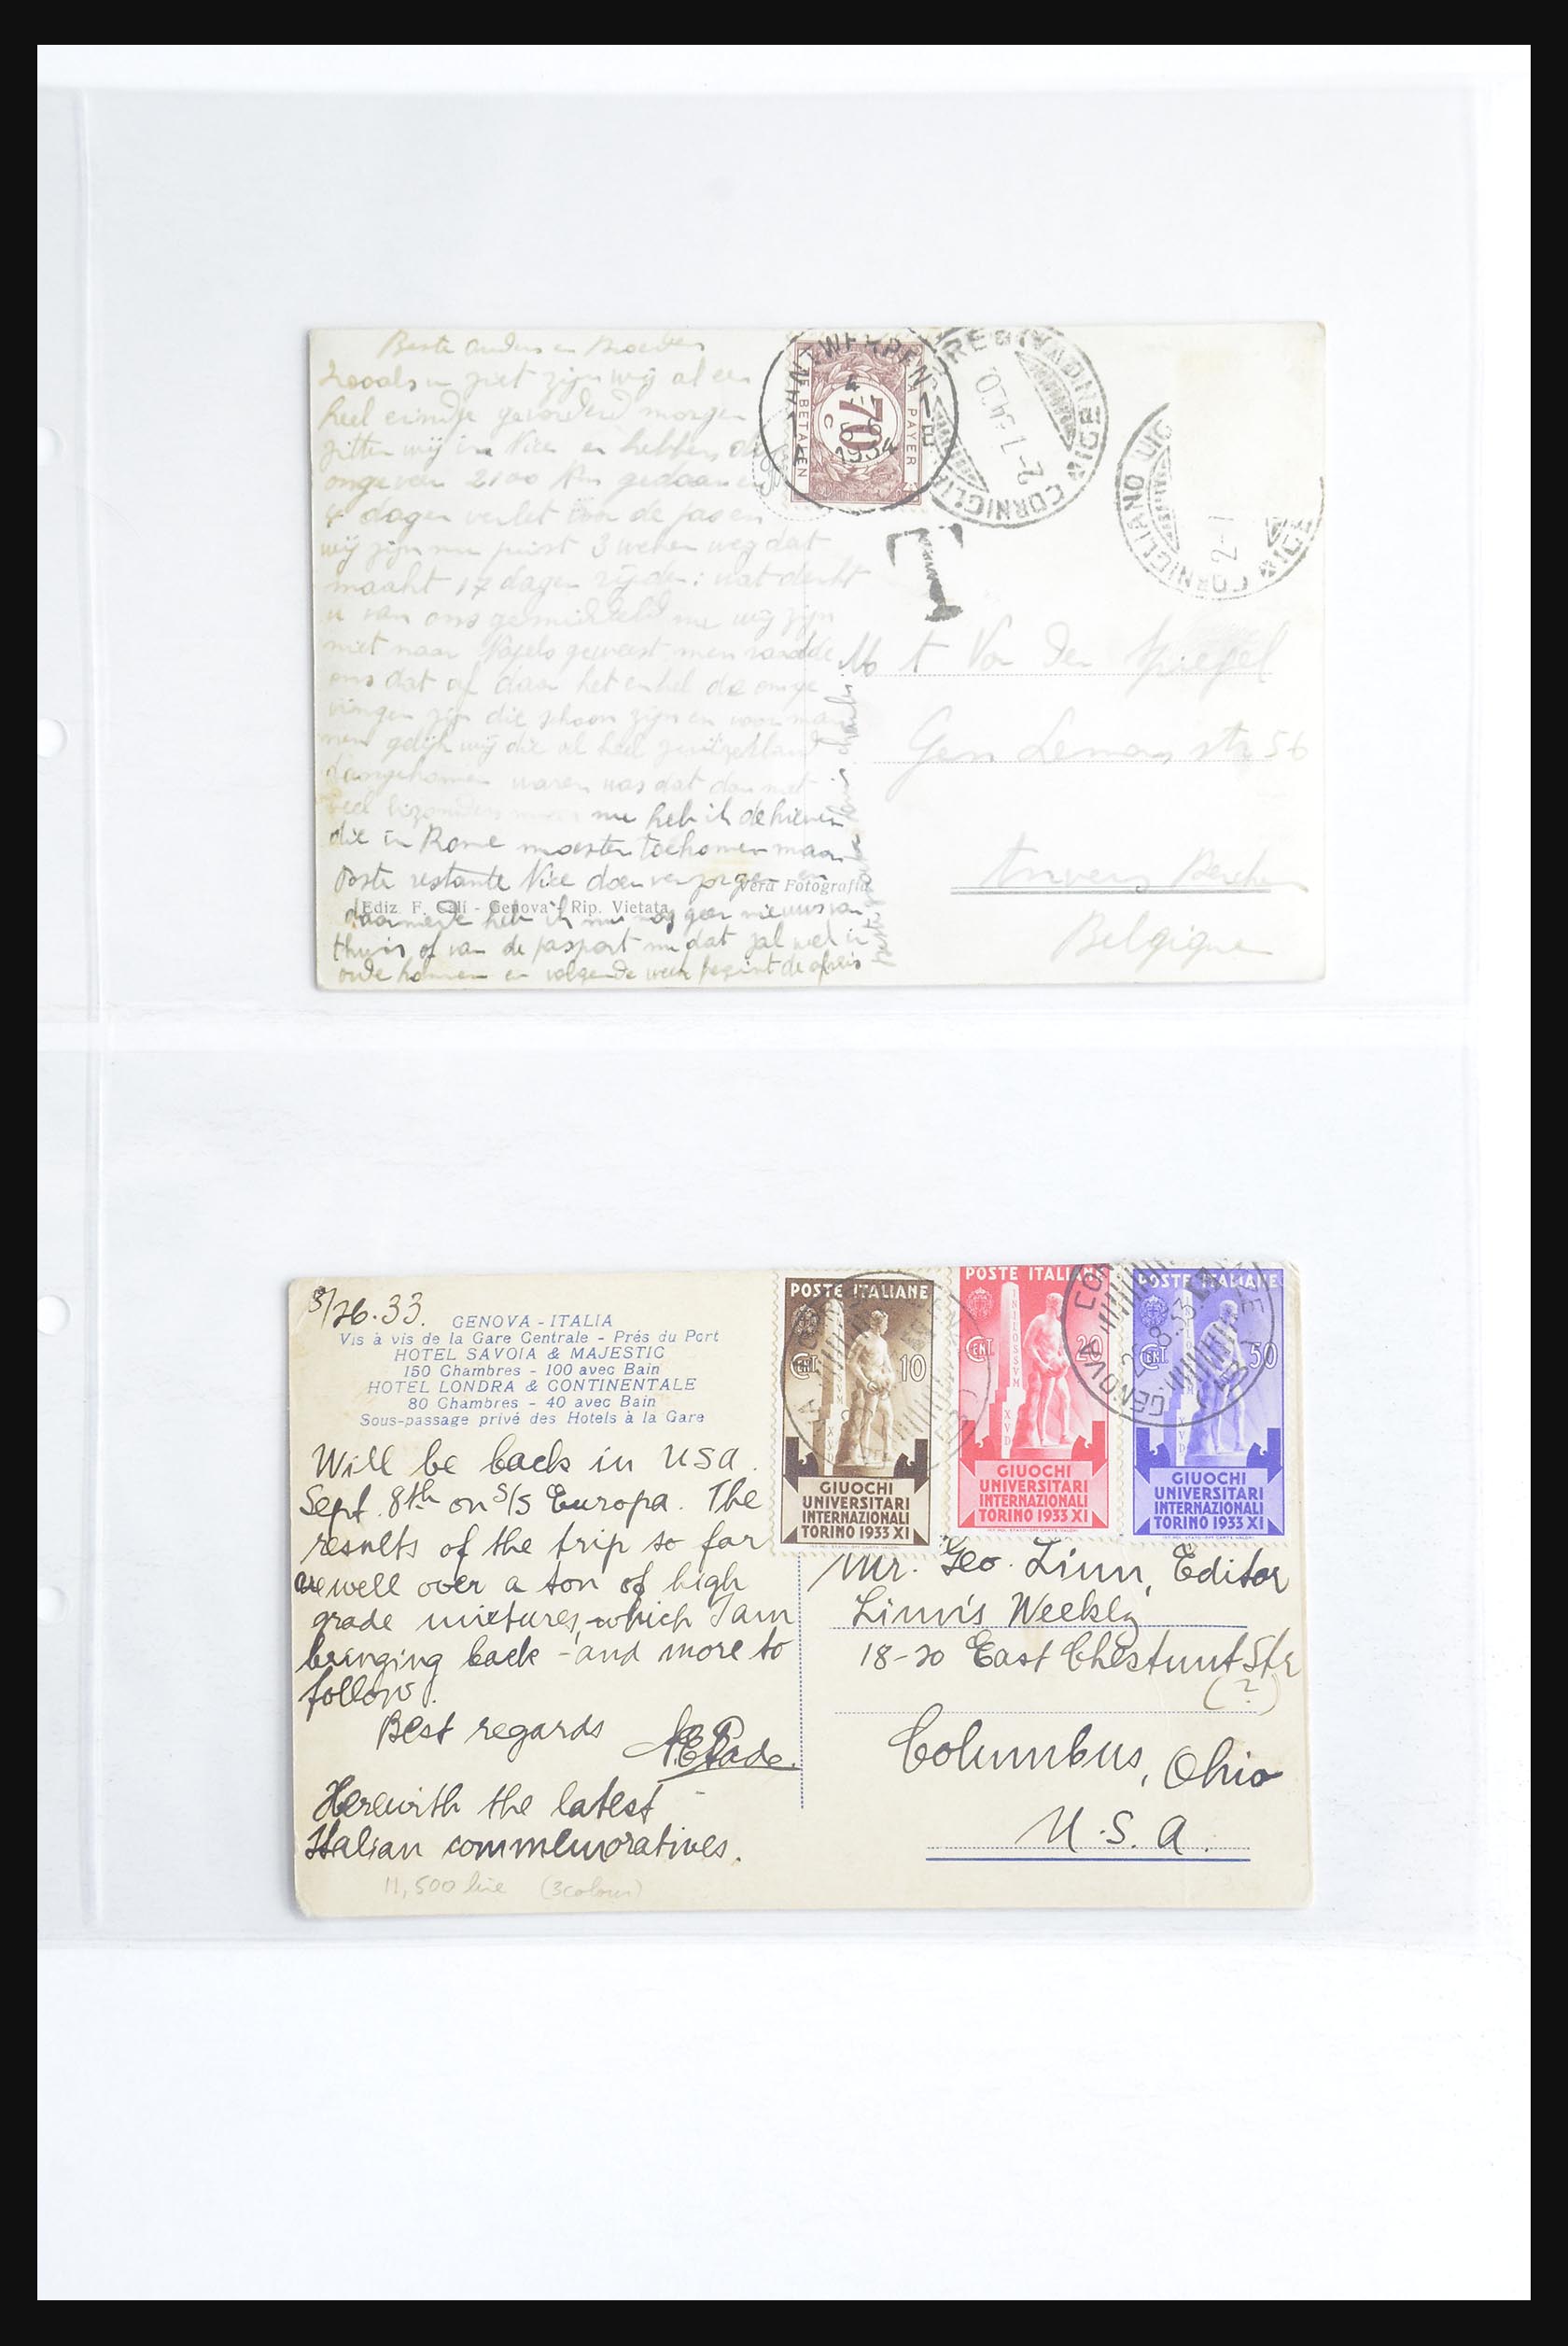 Beste ouders en Broeders
zooals u ziet zijn wij al een
heel eindje gevorderd morgen
zitten wij in Nice en hebben
ongeveer 2100 Km gedaan
4 dagen verlet voor de pas en
wij zijn nu juist 3 weken weg dat
maakt 17 dagen rijden: wat denkt
u van ons gemiddeld nu wij zijn
niet naar geweest men raadde
ons dat af daar het enkel de omge
vingen zijn die schoon zijn en voor man
nen gelijk wij die al heel zwitzerland
waren was dat dan niet
veel nu heb ik de
die in Rome moesten toekomen maar
Poste restante Nice doen en
daarmede heb ik nu nog geen nieuws van
thuis of van de pasport nu dat zal wel in
orde komen en volgende week begint de afreis
Vera Fotografia
Ediz. F. Celi - Genova - Rip. Vietata
ANTWERPEN 1
1934
TE BETALEN
70
C
A PAYER
CORNIGLIANO LIGURE
2-1
T
t Van Den Spiegel
Gen Leman str 56
Anvers Berchem
Belgique
8/26.33.
GENOVA - ITALIA
Vis à vis de la Gare Centrale - Prés du Port
HOTEL SAVOIA & MAJESTIC
150 Chambres - 100 avec Bain
HOTEL LONDRA & CONTINENTALE
80 Chambres - 40 avec Bain
Sous-passage privé des Hotels à la Gare
Will be back in USA.
Sept. 8th on S/S Europa. The
results of the trip so far
are well over a ton of high
grade mixtures, which I am
bringing back - and more to
follow.
Best regards
Herewith the latest
Italian commemoratives.
11,500 lire (3colour)
POSTE ITALIANE
CENT. 10
GIUOCHI
UNIVERSITARI
INTERNAZIONALI
TORINO 1933 XI
POSTE ITALIANE
CENT. 20
GIUOCHI
UNIVERSITARI
INTERNAZIONALI
TORINO 1933 XI
POSTE ITALIANE
CENT. 50
GIUOCHI
UNIVERSITARI
INTERNAZIONALI
TORINO 1933 XI
GENOVA
Mr. Geo. Linn, Editor
Linn's Weekly
18-20 East Chestnut Str
(?)
Columbus, Ohio
U.S.A.